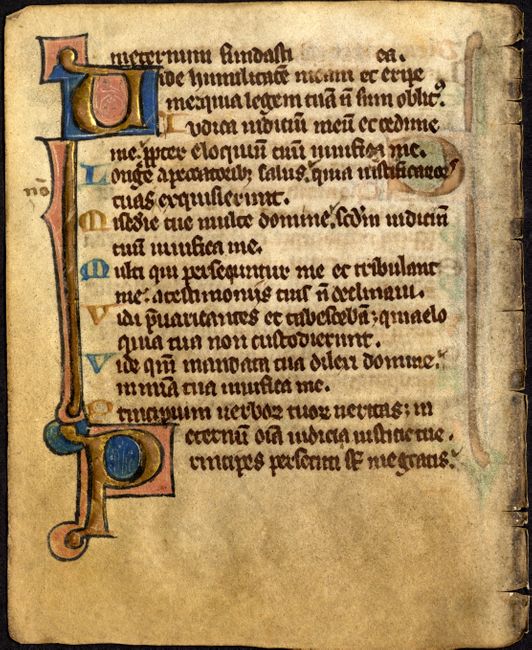 ineternum fundasti ea.
Uide humilitatē meam et eripe
me quia legem tuā n̄ sum oblitꝰ
Iudica iudiciū meū et redime
me. ꝓpter eloquium tuū uiuifica me.
nō
Longe a peccatoribꝫ salus: quia iustificatōes
tuas exquisierunt.
Mis̄edie tue multe domine: scd̄m iudiciū
tuū uiuifica me.
Multi qui persequuntur me et tribulant
me: a testimoniis tuis n̄ declinaui.
Vidi p̄uaricantes et tabescebā; quia elo
quia tua non custodierunt.
Vide qm̄ mandata tua dilexi domine:
in mīa tua uiuifica me.
Principium uerboꝝ tuoꝝ ueritas; in
eternū oīa iudicia iusticie tue.
Principes persecuti sūt me gratis: